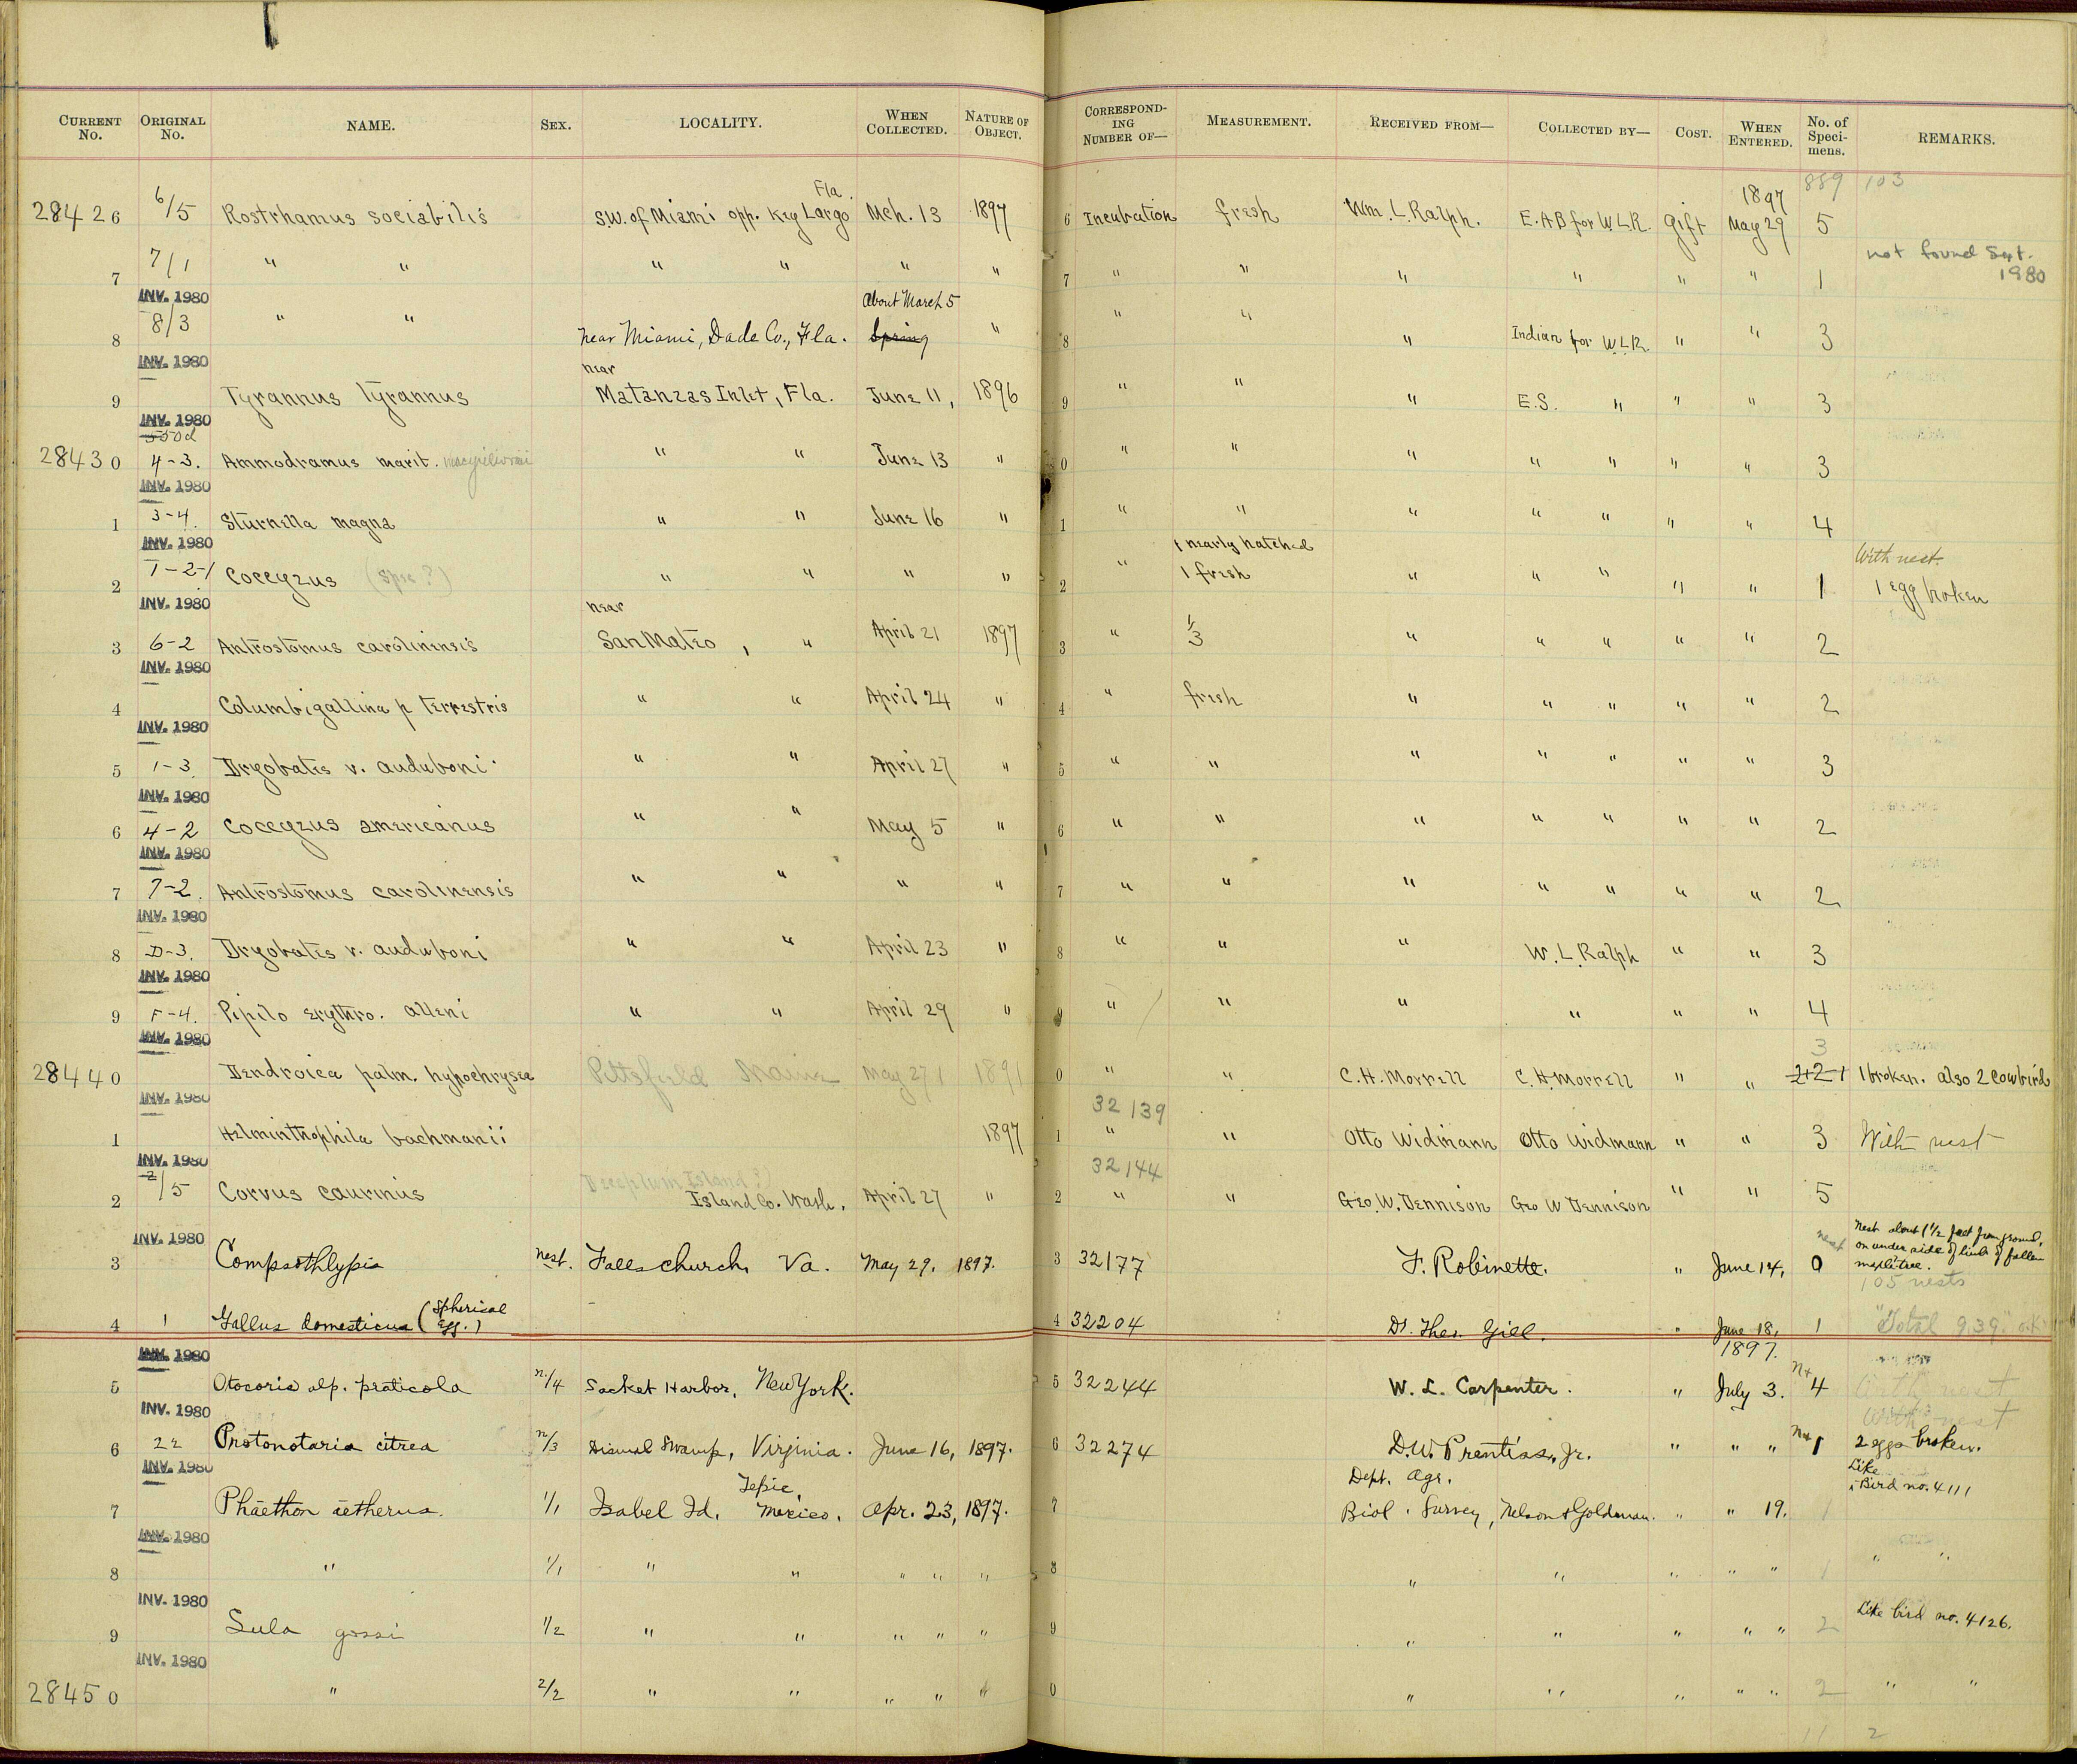 CURRENT No. ORIGINAL No. NAME. SEX. LOCALITY. WHEN COLLECTED. NATURE OF OBJECT. CORRESPONDING NUMBER OF— MEASUREMENT. RECEIVED FROM— COLLECTED BY— COST. WHEN ENTERED. No. of Specimens. REMARKS.
889 103
28426 6/5 Rostrhamus sociabilis S.W. of Miami opp. Key Largo Fla. Mch. 13 1897 6 Incubation fresh Wm. L. Ralph. E.A.B for W.L.R. Gift 1897 May 29 5
7 7/1 " " " " " " 7 " " " " " " 1 not found Sept. 1980
INV. 1980
8 8/3 " " Near Miami, Dade Co., Fla. About March 5 Spring " 8 " " " Indian for W.L.R. " " 3
INV. 1980
9 Tyrannus tyrannus near Matanzas Inlet, Fla. June 11, 1896 9 " " " E.S. " " " 3
INV. 1980
550d
28430 4-3. Ammodramus marit. macgillivraii " " June 13 " 0 " " " " " " " 3
INV. 1980
1 3-4. Sturnella magna " " June 16 " 1 " " " " " " " 4
INV. 1980
2 1-2-1 Coccyzus (spec?) " " " " 2 " 1 nearly hatched 1 fresh " " " " " 1 With nest. 1 egg broken
INV. 1980
3 6-2 Antrostomus carolinensis near San Mateo, " April 21 1897 3 " 1/3 " " " " " 2
INV. 1980
4 Columbigallina p terrestris " " April 24 " 4 " fresh " " " " " 2
INV. 1980
5 1-3. Dryobates v. auduboni " " April 27 " 5 " " " " " " " 3
INV. 1980
6 4-2 Coccyzus americanus " " May 5 " 6 " " " " " " " 2
INV. 1980
7 7-2. Antrostomus carolinensis " " " " 7 " " " " " " " 2
INV. 1980
8 D-3. Dryobates v. auduboni " " April 23 " 8 " " " W. L. Ralph " " 3
INV. 1980
9 F-4. Pipilo erythro. alleni " " April 29 " 9 " " " " " " 4
INV. 1980
28440 Dendroica palm. hypochrysea Pittsfield Maine May 27 1891 0 " " C. H. Morrell C. H. Morrell " " 3 2+2-1 1 broken. also 2 Cowbird
INV. 1980
1 Helminthophila bachmanii 1897 1 32139 " " Otto Widmann Otto Widmann " " 3 With nest
INV. 1980
2 2/5 Corvus caurinus Island Co. Wash. April 27 " 2 32144 " " Geo. W. Dennison Geo W Dennison " " 5
INV. 1980
3 Compsothlypis nest. Falls church, Va. May 29, 1897. 3 32177 F. Robinette. " June 14, nest 0 Nest about 1 1/2 feet from ground, on under side of limb of fallen maple tree.
105 nests
4 1 Gallus domesticus (Spherical Egg.) 4 32204 Dr. Theo. Gill. " June 18, 1897. 1 "Total 939" o.k.
INV. 1980
5 Otocoris alp. praticola n/4 Sacket Harbor, New York. 5 32244 W. L. Carpenter. " July 3. N+ 4 With nest
INV. 1980
6 22 Protonotaria citrea n/3 Dismal Swamp, Virginia. June 16, 1897. 6 32274 D.W. Prentiss, Jr. " " " N+ 1 With nest 2 eggs broken.
INV. 1980
7 Phaethon aetherus. 1/1 Isabel Id. Tepic, Mexico. Apr. 23, 1897. 7 Dept. Agr. Biol. Survey, Nelson & Goldman. " " 19. 1 Like Bird no. 4111
INV. 1980
8 " 1/1 " " " " " 8 " " " " " 1 " "
INV. 1980
9 Sula gossi 1/2 " " " " " 9 " " " " " 2 Like bird no. 4126.
INV. 1980
28450 " 2/2 " " " " " 0 " " " " " 2 " "
11 2